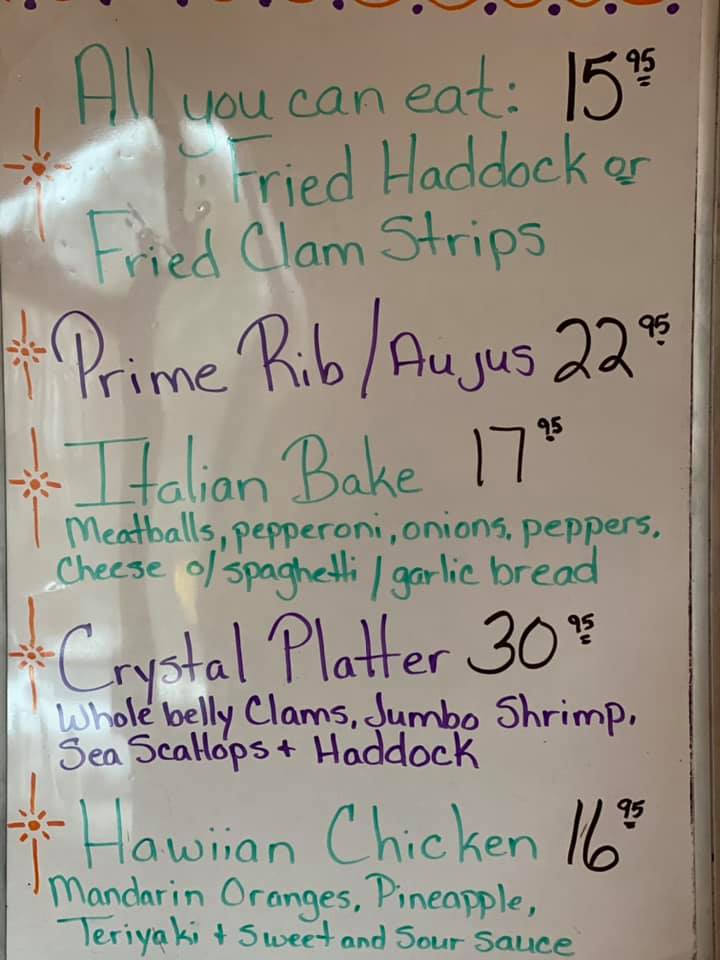 All you can eat: 15 95
Fried Haddock or
Fried Clam Strips
Prime Rib / Au jus 22 95
Italian Bake 17 95
Meatballs, pepperoni, onions, peppers,
Cheese o/ spaghetti / garlic bread
Crystal Platter 30 95
Whole belly Clams, Jumbo Shrimp,
Sea Scallops + Haddock
Hawiian Chicken 16 95
Mandarin Oranges, Pineapple,
Teriyaki + Sweet and Sour Sauce